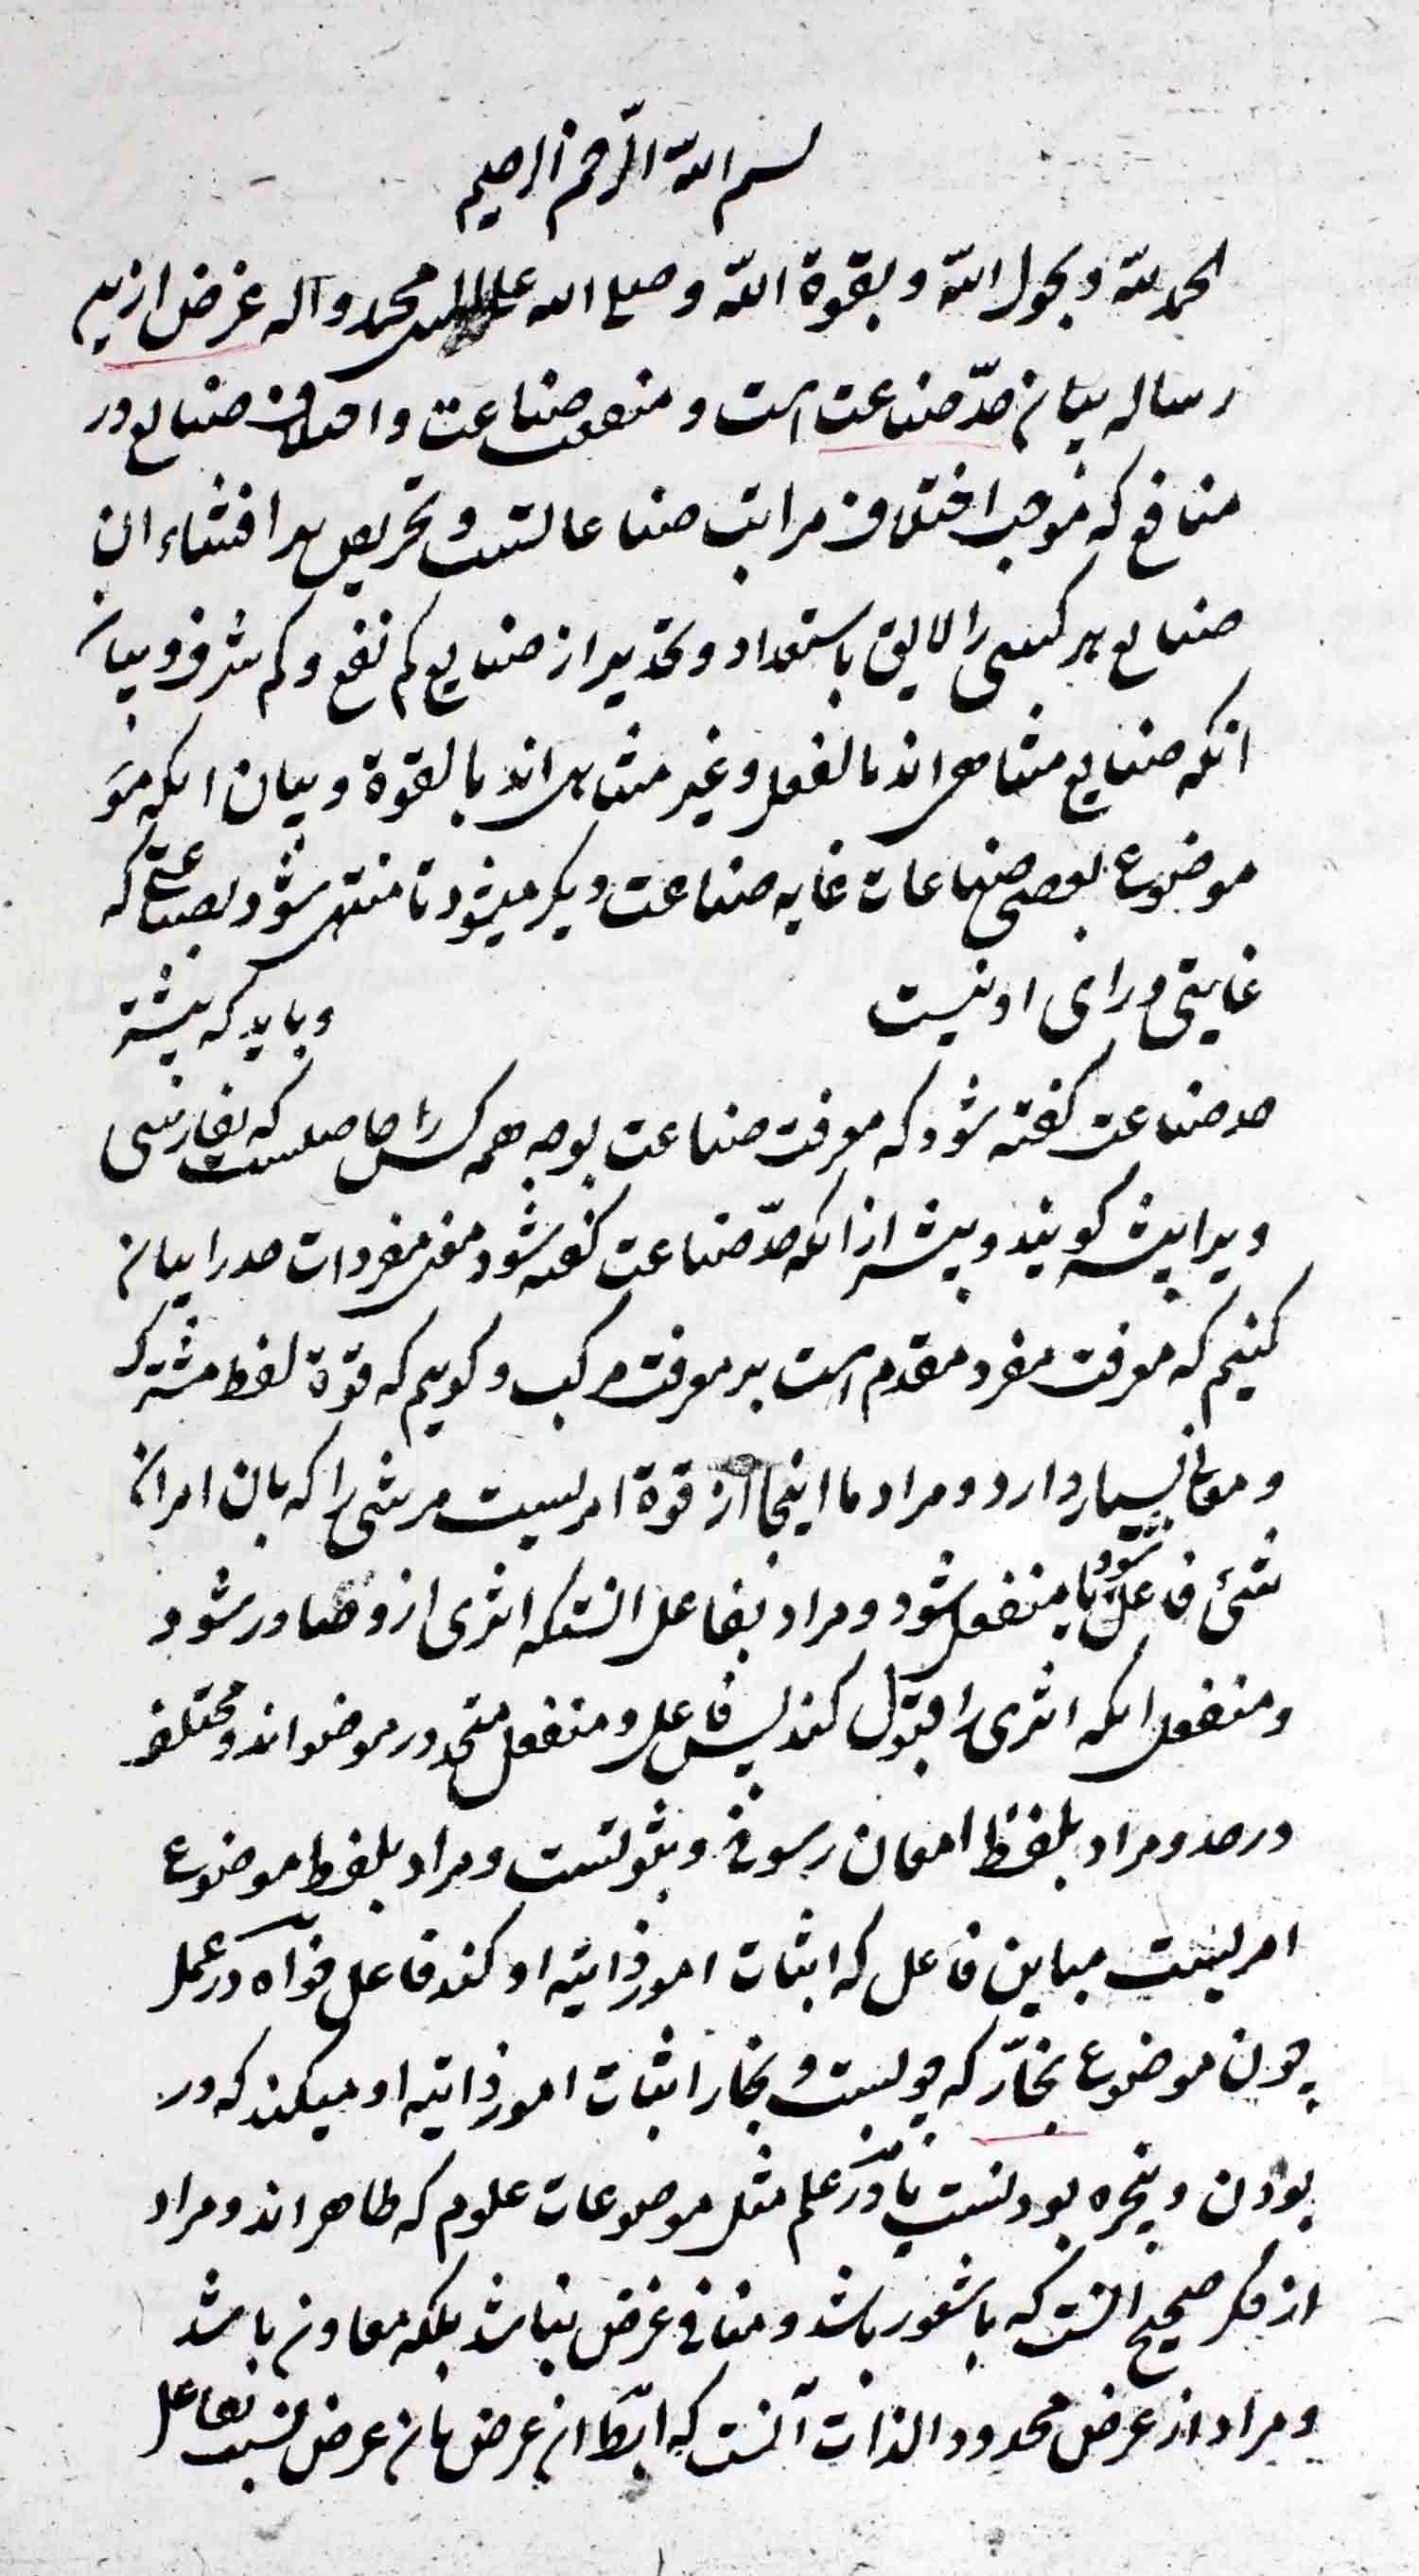 بسم الله الرحمن الرحیم
الحمد لله و بحول الله و بقوة الله و صلی الله علی محمد و آله غرض ازین
رساله بیان حدّ صناعت است و منفعت صناعت و اختلاف صنایع در
منافع که موجب اختلاف مراتب صناعاتست و تحریص بر اقتناء ان
صنایع هر کسی را لایق باستعداد و تحذیر از صنایع کم نفع و کم شرف و بیان
انکه صنایع متناهی اند بالفعل و غیر متناهی اند بالقوة و بیان انکه
موضوع بعضی صناعات غایه صناعت دیگر میشود تا منتهی شود بصناعتی که
غایتی ورای او نیست و باید که پیشتر
حد صناعت گفته شود که معرفت صناعت بوجه همه کس را حاصلست که بفارسی
ویرا پیشه گویند و پیشتر از انکه حدّ صناعت گفته شود معنی مفردات حد را بیان
کنیم که معرفت مفرد مقدم است بر معرفت مرکب و گوییم که قوّة لفظ مشترک
و معانی بسیار دارد و مراد ما اینجا از قوة امریست مر شی را که بان امر ان
شئ فاعل شود یا منفعل شود و مراد بفاعل انستکه اثری ازو صادر شود
و منفعل انکه اثری را قبول کند پس فاعل و منفعل متحد در موضوع اند و مختلف
در حد و مراد بلفظ امعان رسوخ و ثبوتست و مراد بلفظ موضوع
امریست مباین فاعل که اثبات امور ذاتیه او کند فاعل خواه در عمل
چون موضوع نجّار که چوبست و نجار اثبات امور ذاتیه او میکند که در
بودن و پنجره بودنست یا در علم مثل موضوعات علوم که ظاهر اند و مراد
از فکر صحیح انست که با شعور باشد و منافی غرض نباشد بلکه معاون باشد
و مراد از غرض محدود الذات آنست که ان غرض بان غرض نسبت بفاعل